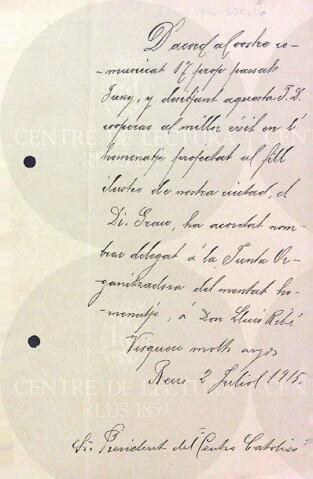 D'acord al vostre co-
municat 17 prop passat
Juny, y desitjant aquesta J. D.
cooperar al millor éxit en l'
homenatje projectat al fill
ilustre de nostra ciutat, el
Dr. Grau, ha acordat nom-
brar delegat á la Junta Or-
ganitzadora del mentat ho-
menatje, á Don Lluis Ribé
Visqueu molts anys
Reus 2 Juliol 1915.
Sr. President del "Centro Catolich"
CENTRE DE LECTURA
REUS 1859
CENTRE DE LECTURA
REUS 1859